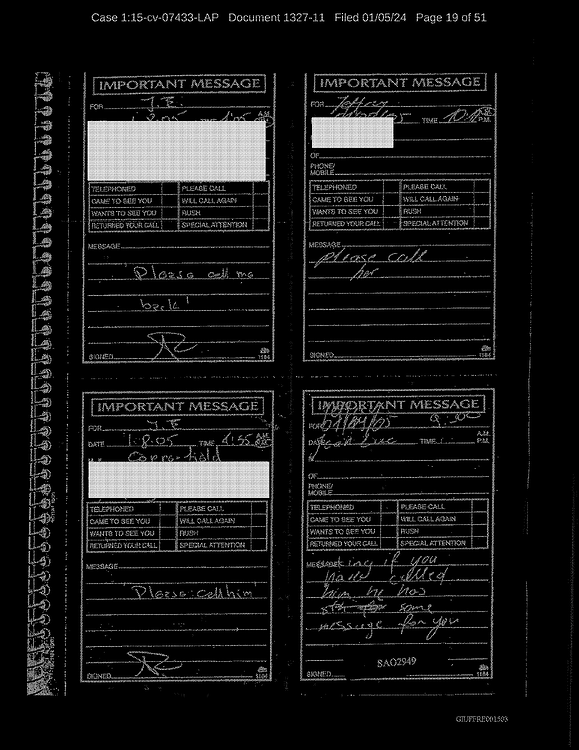 Case 1:15-cv-07433-LAP Document 1327-11 Filed 01/05/24 Page 19 of 51
IMPORTANT MESSAGE
FOR J.E.
TIME
TELEPHONED PLEASE CALL
CAME TO SEE YOU WILL CALL AGAIN
WANTS TO SEE YOU RUSH
RETURNED YOUR CALL SPECIAL ATTENTION
MESSAGE
Please call me
back!
SIGNED
1184
IMPORTANT MESSAGE
FOR Jeffrey
TIME P.M.
OF
PHONE/
MOBILE
TELEPHONED PLEASE CALL
CAME TO SEE YOU WILL CALL AGAIN
WANTS TO SEE YOU RUSH
RETURNED YOUR CALL SPECIAL ATTENTION
MESSAGE
please call
her
SIGNED
1184
IMPORTANT MESSAGE
FOR J.E
DATE 1.8.05 TIME A.M.
TELEPHONED PLEASE CALL
CAME TO SEE YOU WILL CALL AGAIN
WANTS TO SEE YOU RUSH
RETURNED YOUR CALL SPECIAL ATTENTION
MESSAGE
Please call him
SIGNED
1184
IMPORTANT MESSAGE
FOR A.M.
Jean Luc TIME P.M.
M
OF
PHONE/
MOBILE
TELEPHONED PLEASE CALL
CAME TO SEE YOU WILL CALL AGAIN
WANTS TO SEE YOU RUSH
RETURNED YOUR CALL SPECIAL ATTENTION
if you
have called
him. he has
some
message for you
SAO2949
SIGNED
1184
GIUFFRE001503